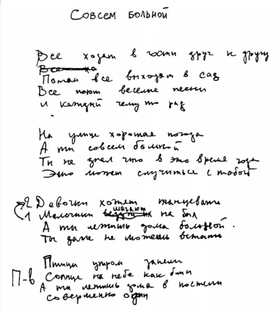 СОВСЕМ БОЛЬНОЙ
Все ходят в гости друг к другу
Все
Потом все выходят в сад
Все поют веселые песни
И каждый чему то рад
На улице хорошая погода
А ты совсем больной
Ты не знал что в это время года
Это может случиться с тобой
2 Девочки хотят танцевать
1 Мальчики шагают на бал
А ты лежишь дома больной
Ты даже не можешь встать
Птицы утром запели
П-в Солнце на небе как блин
А ты лежишь дома в постели
Совершенно один